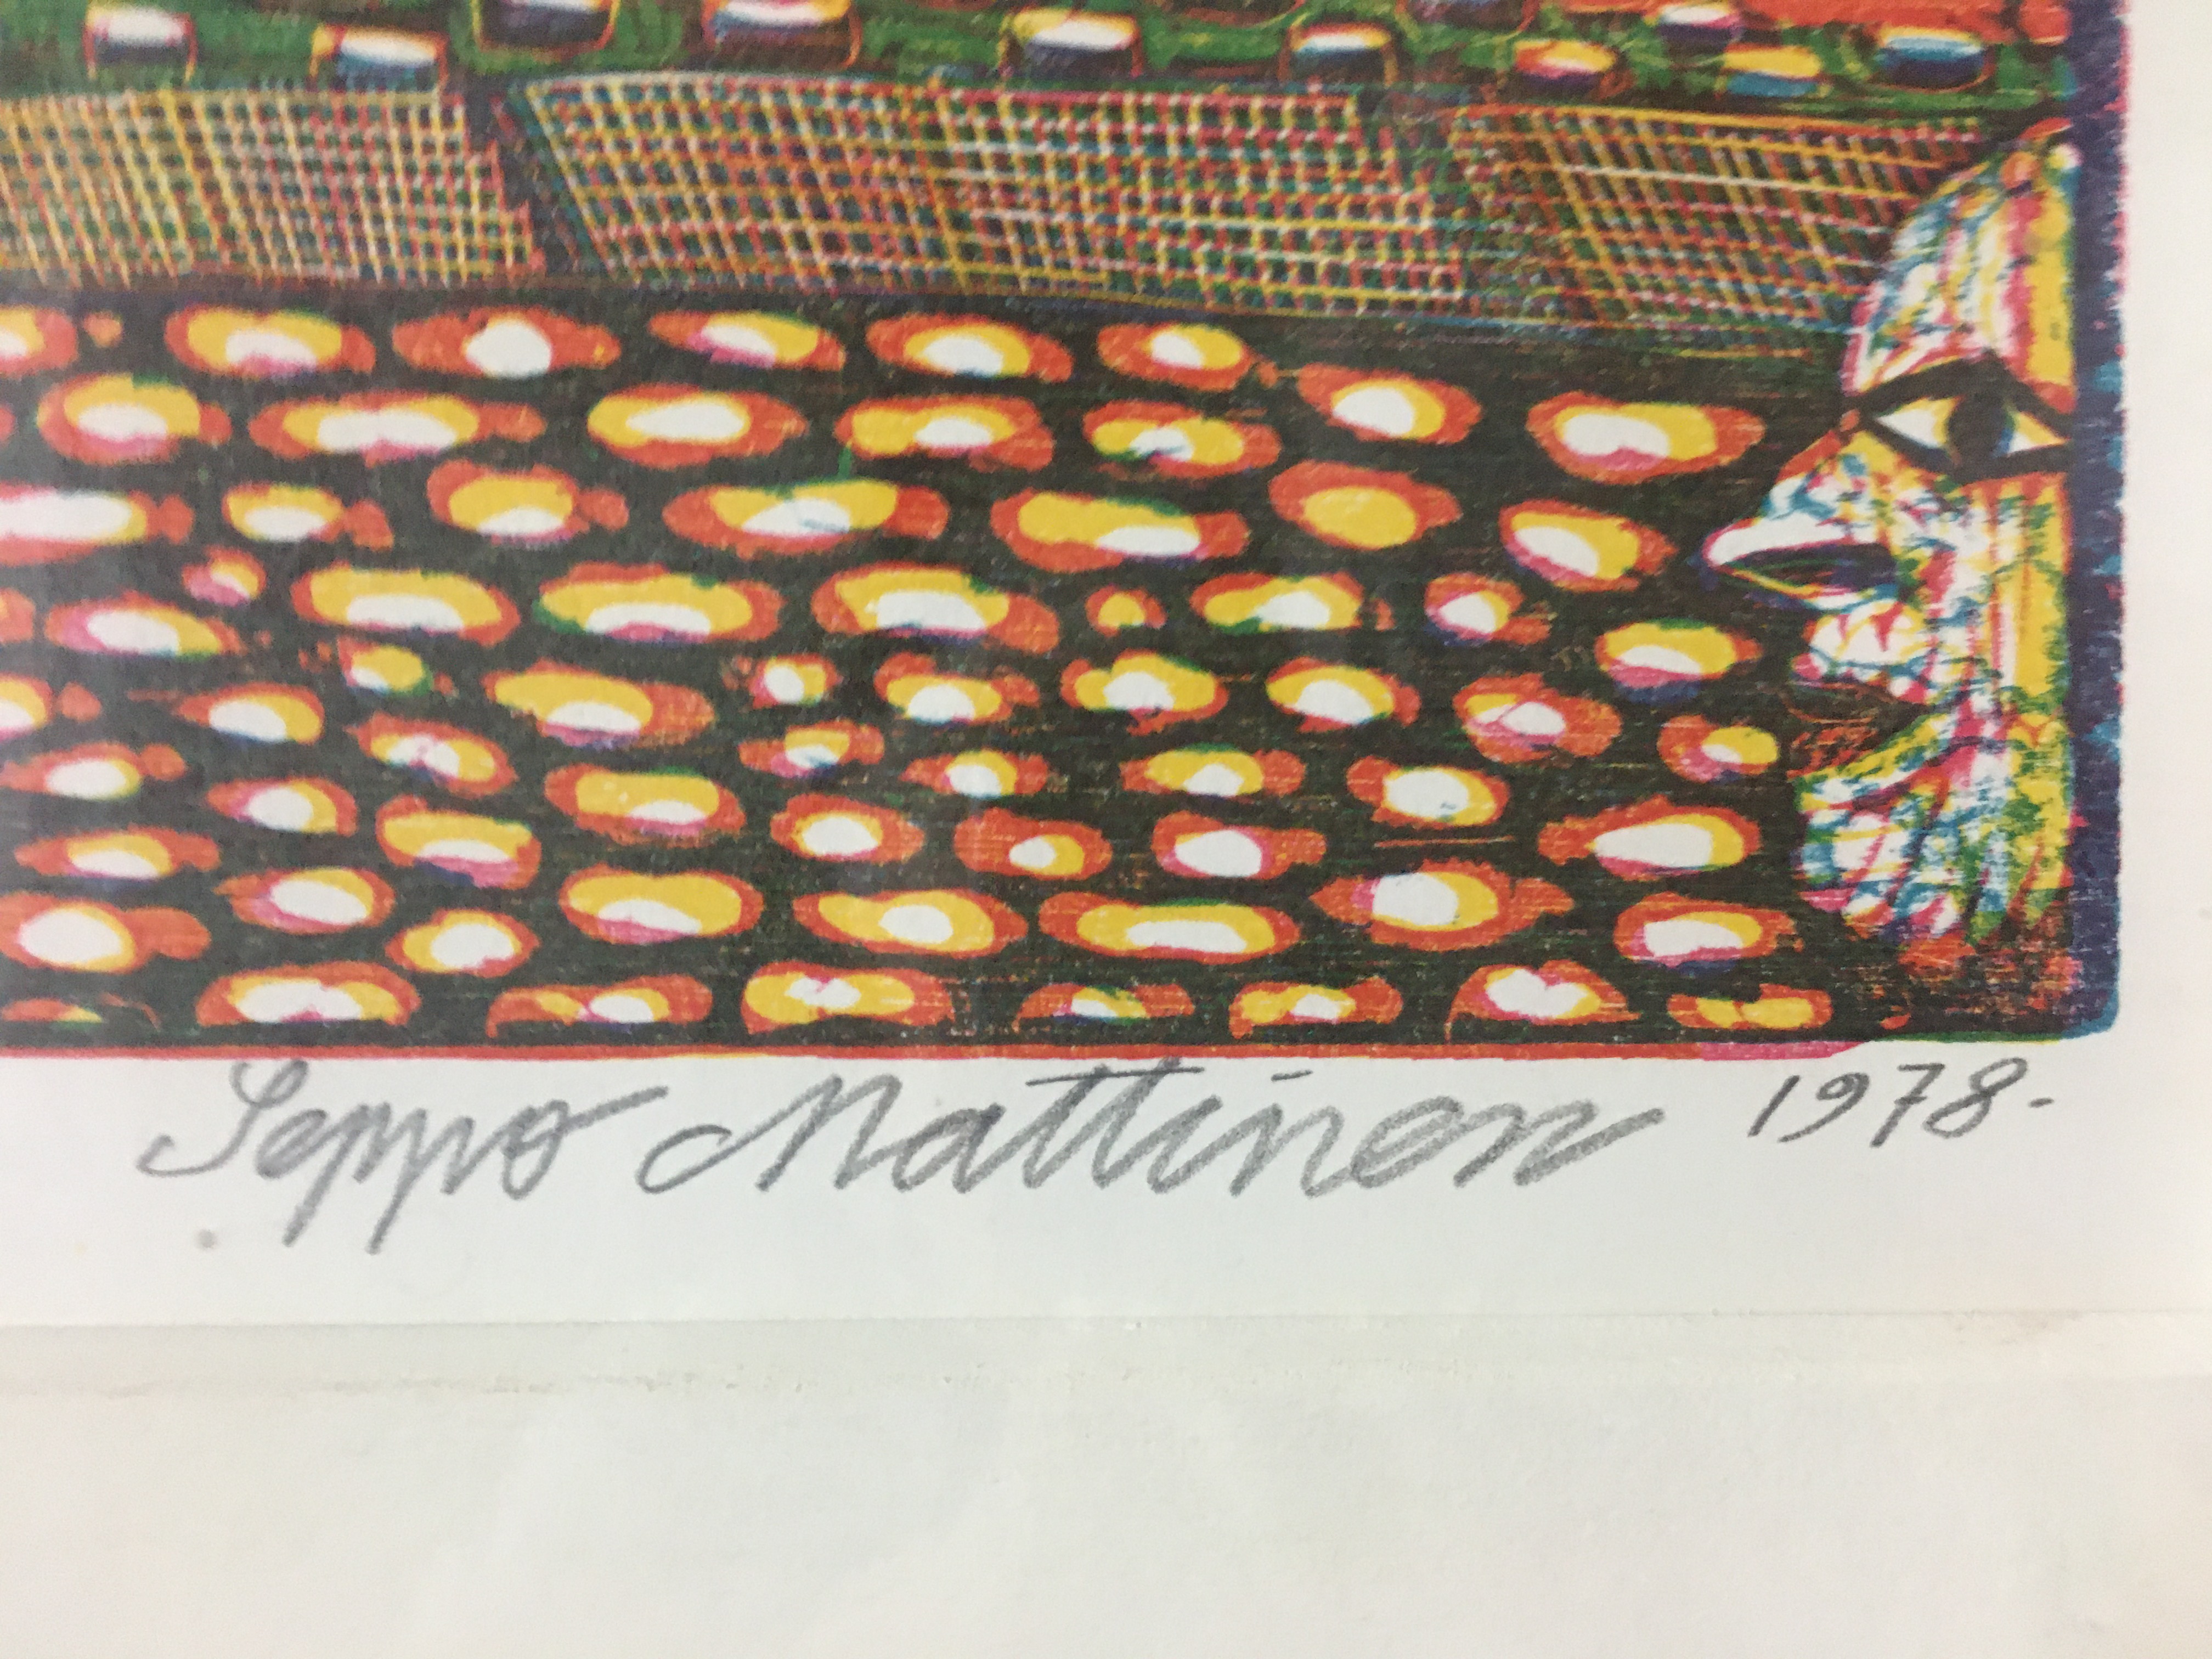 Seppo Mattinen 1978-